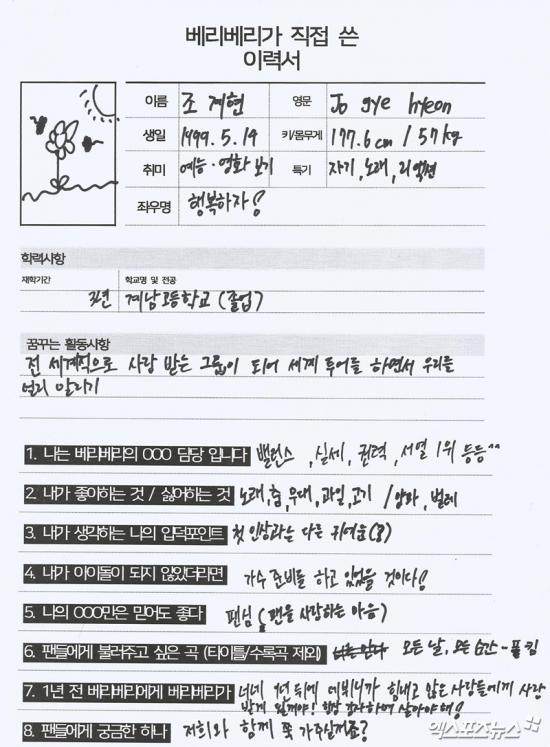 베리베리가 직접 쓴
이력서
이름 조 계현 영문 Jo gye hyeon
생일 1999. 5. 14 키/몸무게 177.6cm / 57kg
취미 예능·영화 보기 특기 자기, 노래, 리액션
좌우명 행복하자!
학력사항
재학기간 학교명 및 전공
3년 계남고등학교 (졸업)
꿈꾸는 활동사항
전 세계적으로 사랑 받는 그룹이 되어 세계 투어를 하면서 우리를
널리 알리기
1. 나는 베리베리의 OOO 담당 입니다 밸런스, 실세, 권력, 서열 1위 등등^^
2. 내가 좋아하는 것 / 싫어하는 것 노래, 춤, 무대, 과일, 고기 / 양파, 벌레
3. 내가 생각하는 나의 입덕포인트 첫 인상과는 다른 귀여움(?)
4. 내가 아이돌이 되지 않았더라면 가수 준비를 하고 있었을 것이다!
5. 나의 OOO만은 믿어도 좋다 팬심 (팬을 사랑하는 마음)
6. 팬들에게 불러주고 싶은 곡 (타이틀/수록곡 제외) 모든 날, 모든 순간 - 폴킴
7. 1년 전 베리베리에게 베리베리가 너네 1년 뒤에 데뷔니까 힘내고 많은 사람들에게 사랑
받게 될거야! 항상 감사하며 살아야 해!
8. 팬들에게 궁금한 하나 저희와 함께 쭉 가주실거죠?
엑스포츠뉴스